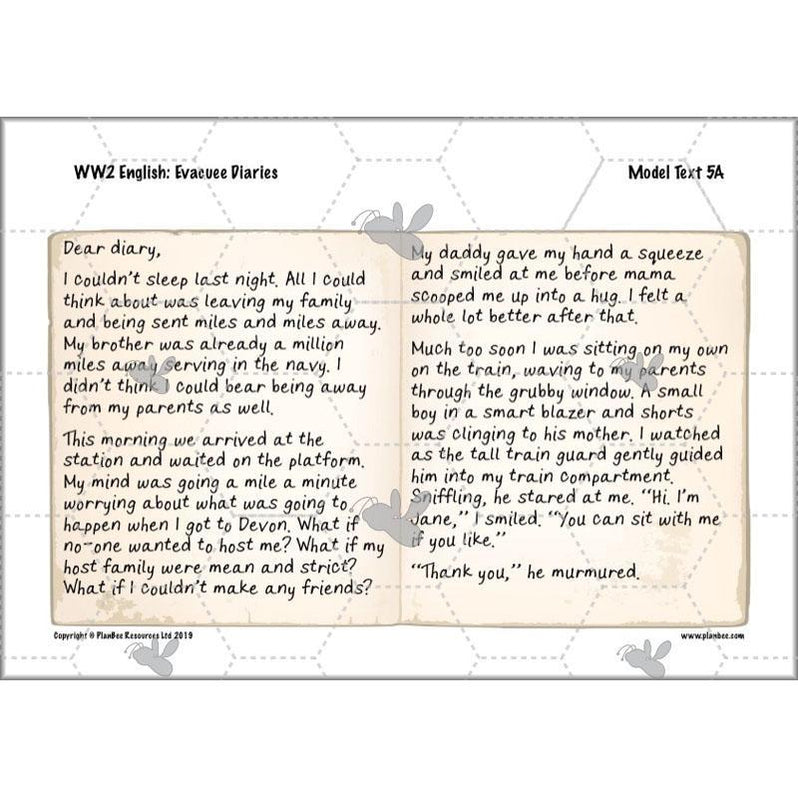 WW2 English: Evacuee Diaries
Model Text 5A
Dear diary,
I couldn't sleep last night. All I could
think about was leaving my family
and being sent miles and miles away.
My brother was already a million
miles away serving in the navy. I
didn't think I could bear being away
from my parents as well.
This morning we arrived at the
station and waited on the platform.
My mind was going a mile a minute
worrying about what was going to
happen when I got to Devon. What if
no-one wanted to host me? What if my
host family were mean and strict?
What if I couldn't make any friends?
My daddy gave my hand a squeeze
and smiled at me before mama
scooped me up into a hug. I felt a
whole lot better after that.
Much too soon I was sitting on my own
on the train, waving to my parents
through the grubby window. A small
boy in a smart blazer and shorts
was clinging to his mother. I watched
as the tall train guard gently guided
him into my train compartment.
Sniffling, he stared at me. “Hi. I'm
Jane,” I smiled. “You can sit with me
if you like.”
“Thank you,” he murmured.
Copyright © PlanBee Resources Ltd 2019
www.planbee.com